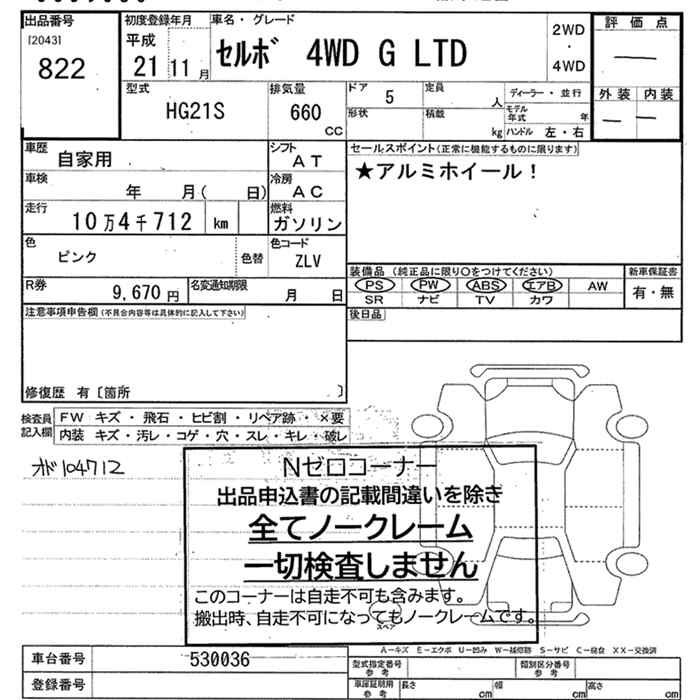 出品番号
[2043]
822
初度登録年月
平成
21 11 月
車名・グレード
セルボ 4WD G LTD
2WD
・
4WD
評価点
外装 内装
型式
HG21S
排気量
660
CC
ドア 5
定員
人
形状
積載
kg
ディーラー・並行
モデル年式
年
ハンドル 左・右
車歴
自家用
シフト
AT
セールスポイント(正常に機能するものに限ります)
★アルミホイール！
車検
年 月( 日)
冷房
AC
走行
10万4千712 km
燃料
ガソリン
色
ピンク
色替
色コード
ZLV
装備品 (純正品に限り○をつけてください)
PS PW ABS エアB AW
SR ナビ TV カワ
新車保証書
有・無
R券
9,670 円
名変通知期限
月 日
後日品
注意事項申告欄(不具合内容等は具体的に記入して下さい)
修復歴 有〔箇所 〕
検査員記入欄
FW キズ・飛石・ヒビ割・リペア跡・×要
内装 キズ・汚レ・コゲ・穴・スレ・キレ・破レ
104712
Nゼロコーナー
出品申込書の記載間違いを除き
全てノークレーム
一切検査しません
このコーナーは自走不可も含みます。
搬出時、自走不可になってもノークレームです。
スペア
A－キズ E－エクボ U－凹み W－補修跡 S－サビ C－腐食 XX－交換済
車台番号
530036
登録番号
型式指定番号
参考
類別区分番号
参考
車庫証明用
参考
長さ
cm
幅
cm
高さ
cm